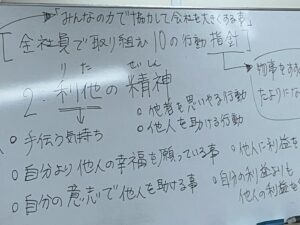 「みんなの力で協力して会社を大きくする事」
[全社員で取り組む10の行動指針]
りた せいしん
2.利他の精神
物事をする
たよりにな
○他者を思いやる行動
○他人を助ける行動
○手伝う気持ち
○自分より他人の幸福を願っている事
○他人に利益を
○自分の意志で他人を助ける事
○自分の利益よりも
他人の利益を